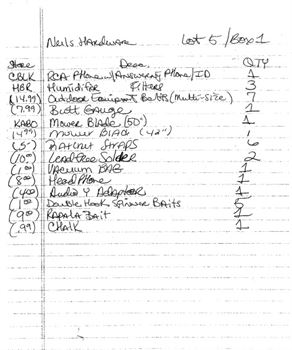 Neils Hardware Lot 5/Box 1
Store Desc. QTY
CBLK RCA Phone w/Answering Phone/ID 1
HBR Humidifer Filters 3
(14.99) Outdoor Equipment Belts (Multi-Size) 7
(7.99) Butt Gauge 1
KABO Mower Blade (50") 1
14.99 Mower Blad (42") 1
(5") Ratchet Straps 6
(10.00) Lead-Free Solder 2
(1.00) Vacuum Bag 1
(8.00) Head Phone 1
(4.00) Audio Y Adaptor 1
(1.00) Double Hook Spinner Baits 5
(9.00) Rapala Bait 1
(.99) Chalk 1